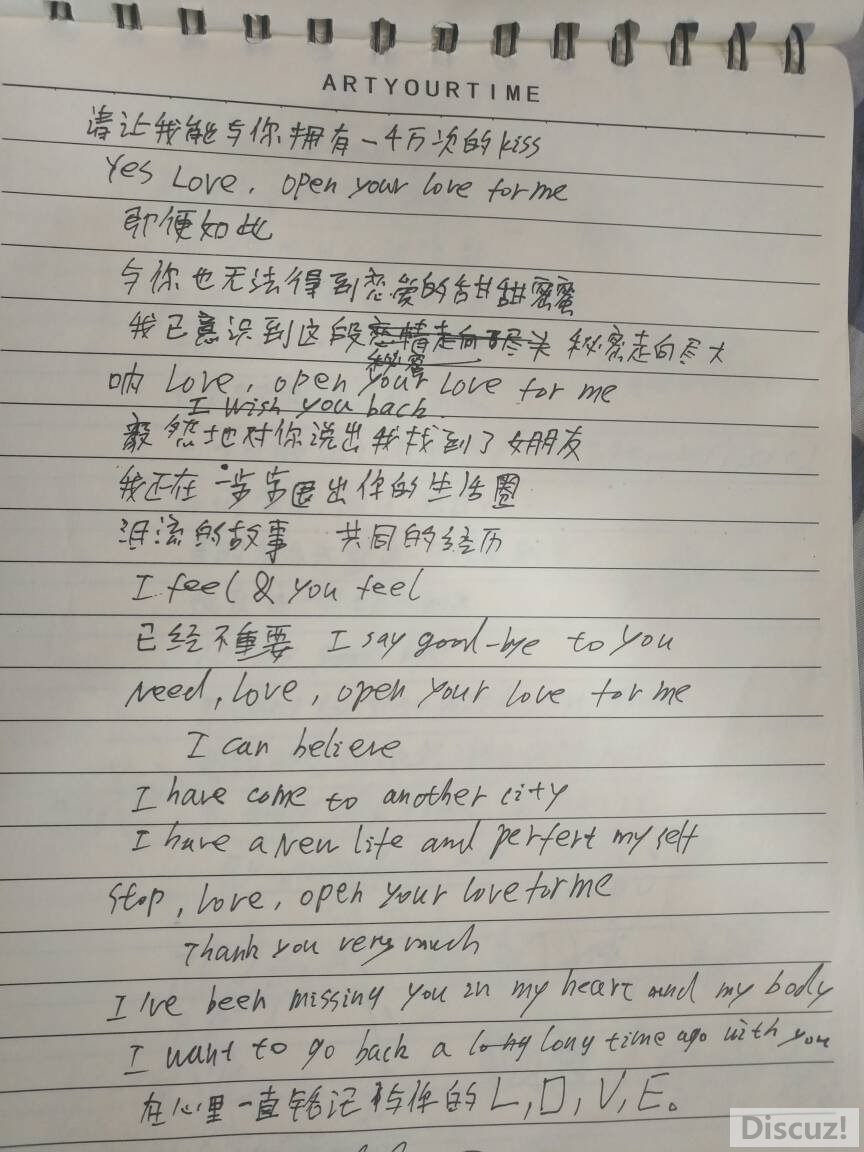 ARTYOURTIME
请让我能与你拥有一4万次的kiss
Yes Love, open your love for me
即便如此
与你也无法得到恋爱的甜甜蜜蜜
我已意识到这段恋情走向了尽头 秘密走向尽头
秘密
呐 Love, open your Love for me
I wish you back.
毅然地对你说出我找到了女朋友
我正在一步步退出你的生活圈
泪流的故事 共同的经历
I feel & you feel
已经不重要 I say good-bye to you
Need, love, open your love for me
I can believe
I have come to another city
I have a New life and perfert my self
Stop, love, open your love for me
Thank you very much
I I've been missing you in my heart and my body
I want to go back a long long time ago with you
在心里一直铭记和你的L,O,V,E。
Discuz!